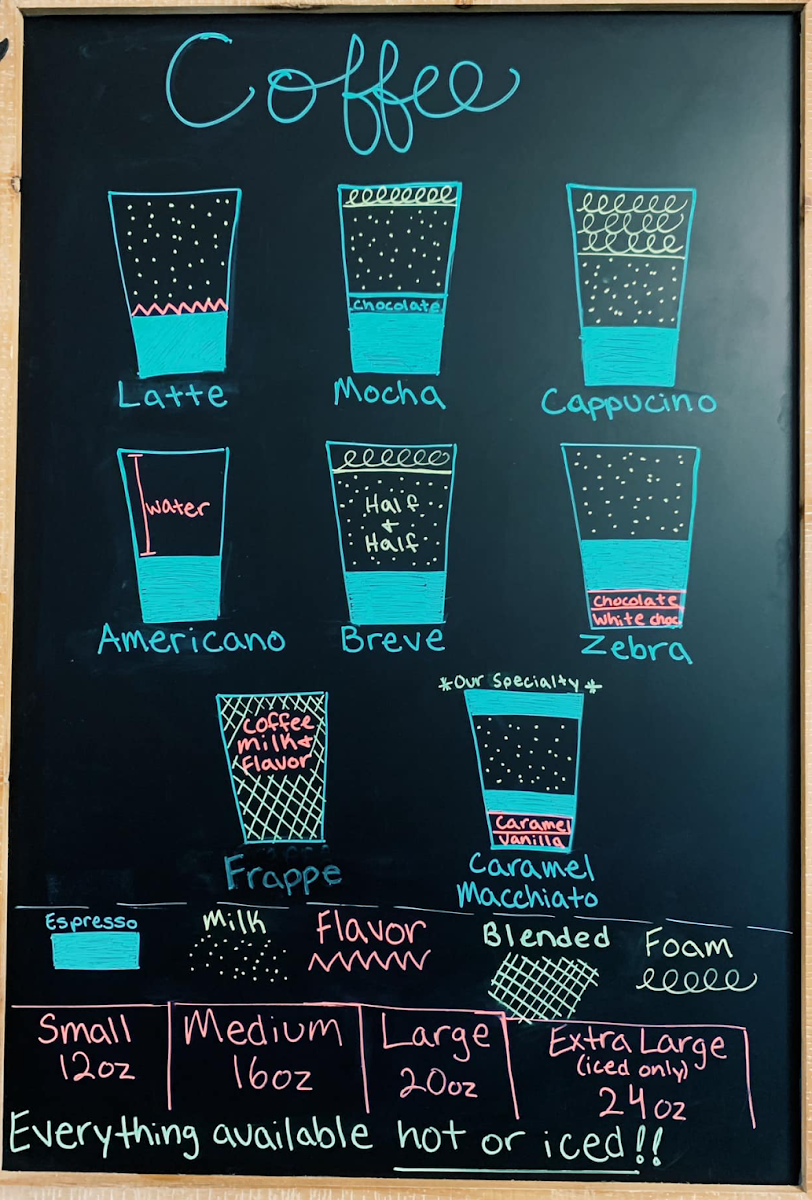 Coffee
chocolate
Latte
Mocha
Cappucino
water
Half
&
Half
Chocolate
White choc
Americano
Breve
Zebra
*Our Specialty*
Coffee
milk &
flavor
Caramel
Vanilla
Frappe
Caramel
Macchiato
Espresso
Milk
Flavor
Blended
Foam
Small
12oz
Medium
16oz
Large
20oz
Extra Large
(iced only)
24oz
Everything available hot or iced!!